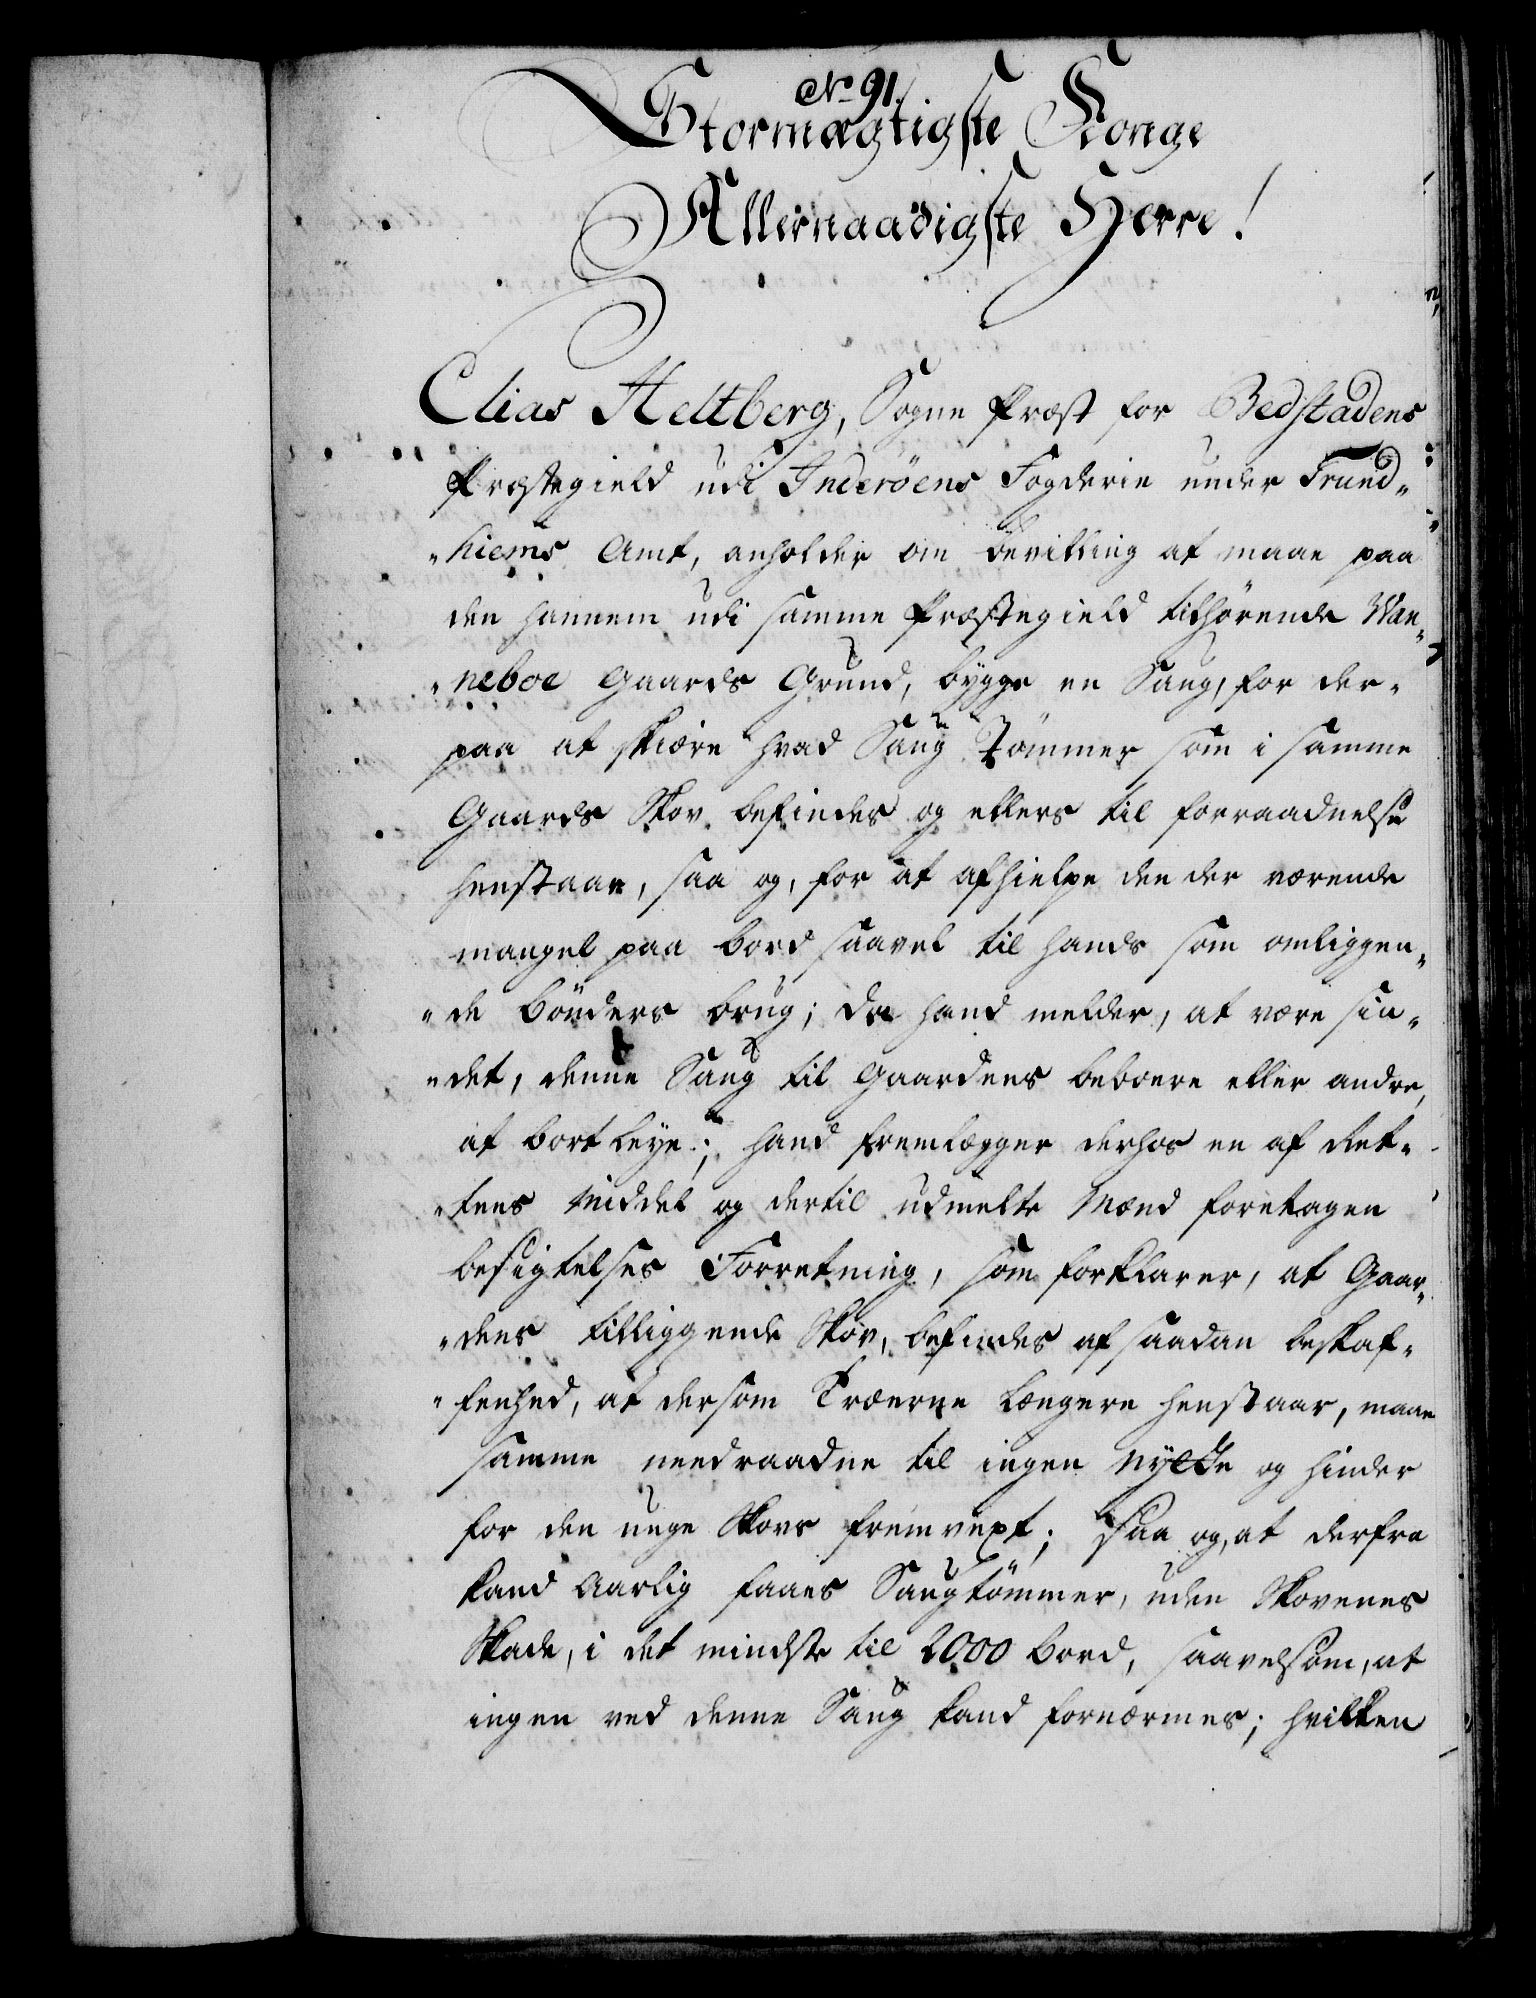 No 91.
Stormægtigste Konge
Allernaadigste Herre!
Elias Heltberg, Sogne Præst for Bedstadens
Præstegield udi Inderöens Fogderie under Trund„
„hiems Amt, anholder om bevilling at maae paa
den hannem udi samme Præstegield tilhørende Wan„
„neboe Gaards Grund, bygge en Saug, for der„
paa at skiære hvad Saug Tömmer som i samme
Gaards Skov befindes og ellers til forraadnelse
henstaae, saa og, for at afhielpe den der værende
mangel paa bord saavel til hands som omliggen„
„de bönders brug; da hand melder, at være sin„
„det, denne Saug til Gaardens beboere eller andre,
at bortleye; hand fremlægger derhos en af Ret„
„tens Middel og dertil udmelte Mænd foretagen
besigtelses Forretning, som forklarer, at Gaar„
„dens tilliggende Skov, befindes af saadan beskaf„
„fenhed, at dersom Træerne længere henstaar, maae
samme needraadne til ingen nytte og hinder
for den unge Skovs fremvext; saa og, at derfra
kand Aarlig faaes Saugtömmer, uden Skovenes
Skade, i det mindste til 2000 bord, saavelsom, at
ingen ved denne Saug kand fornærmes; hvilken